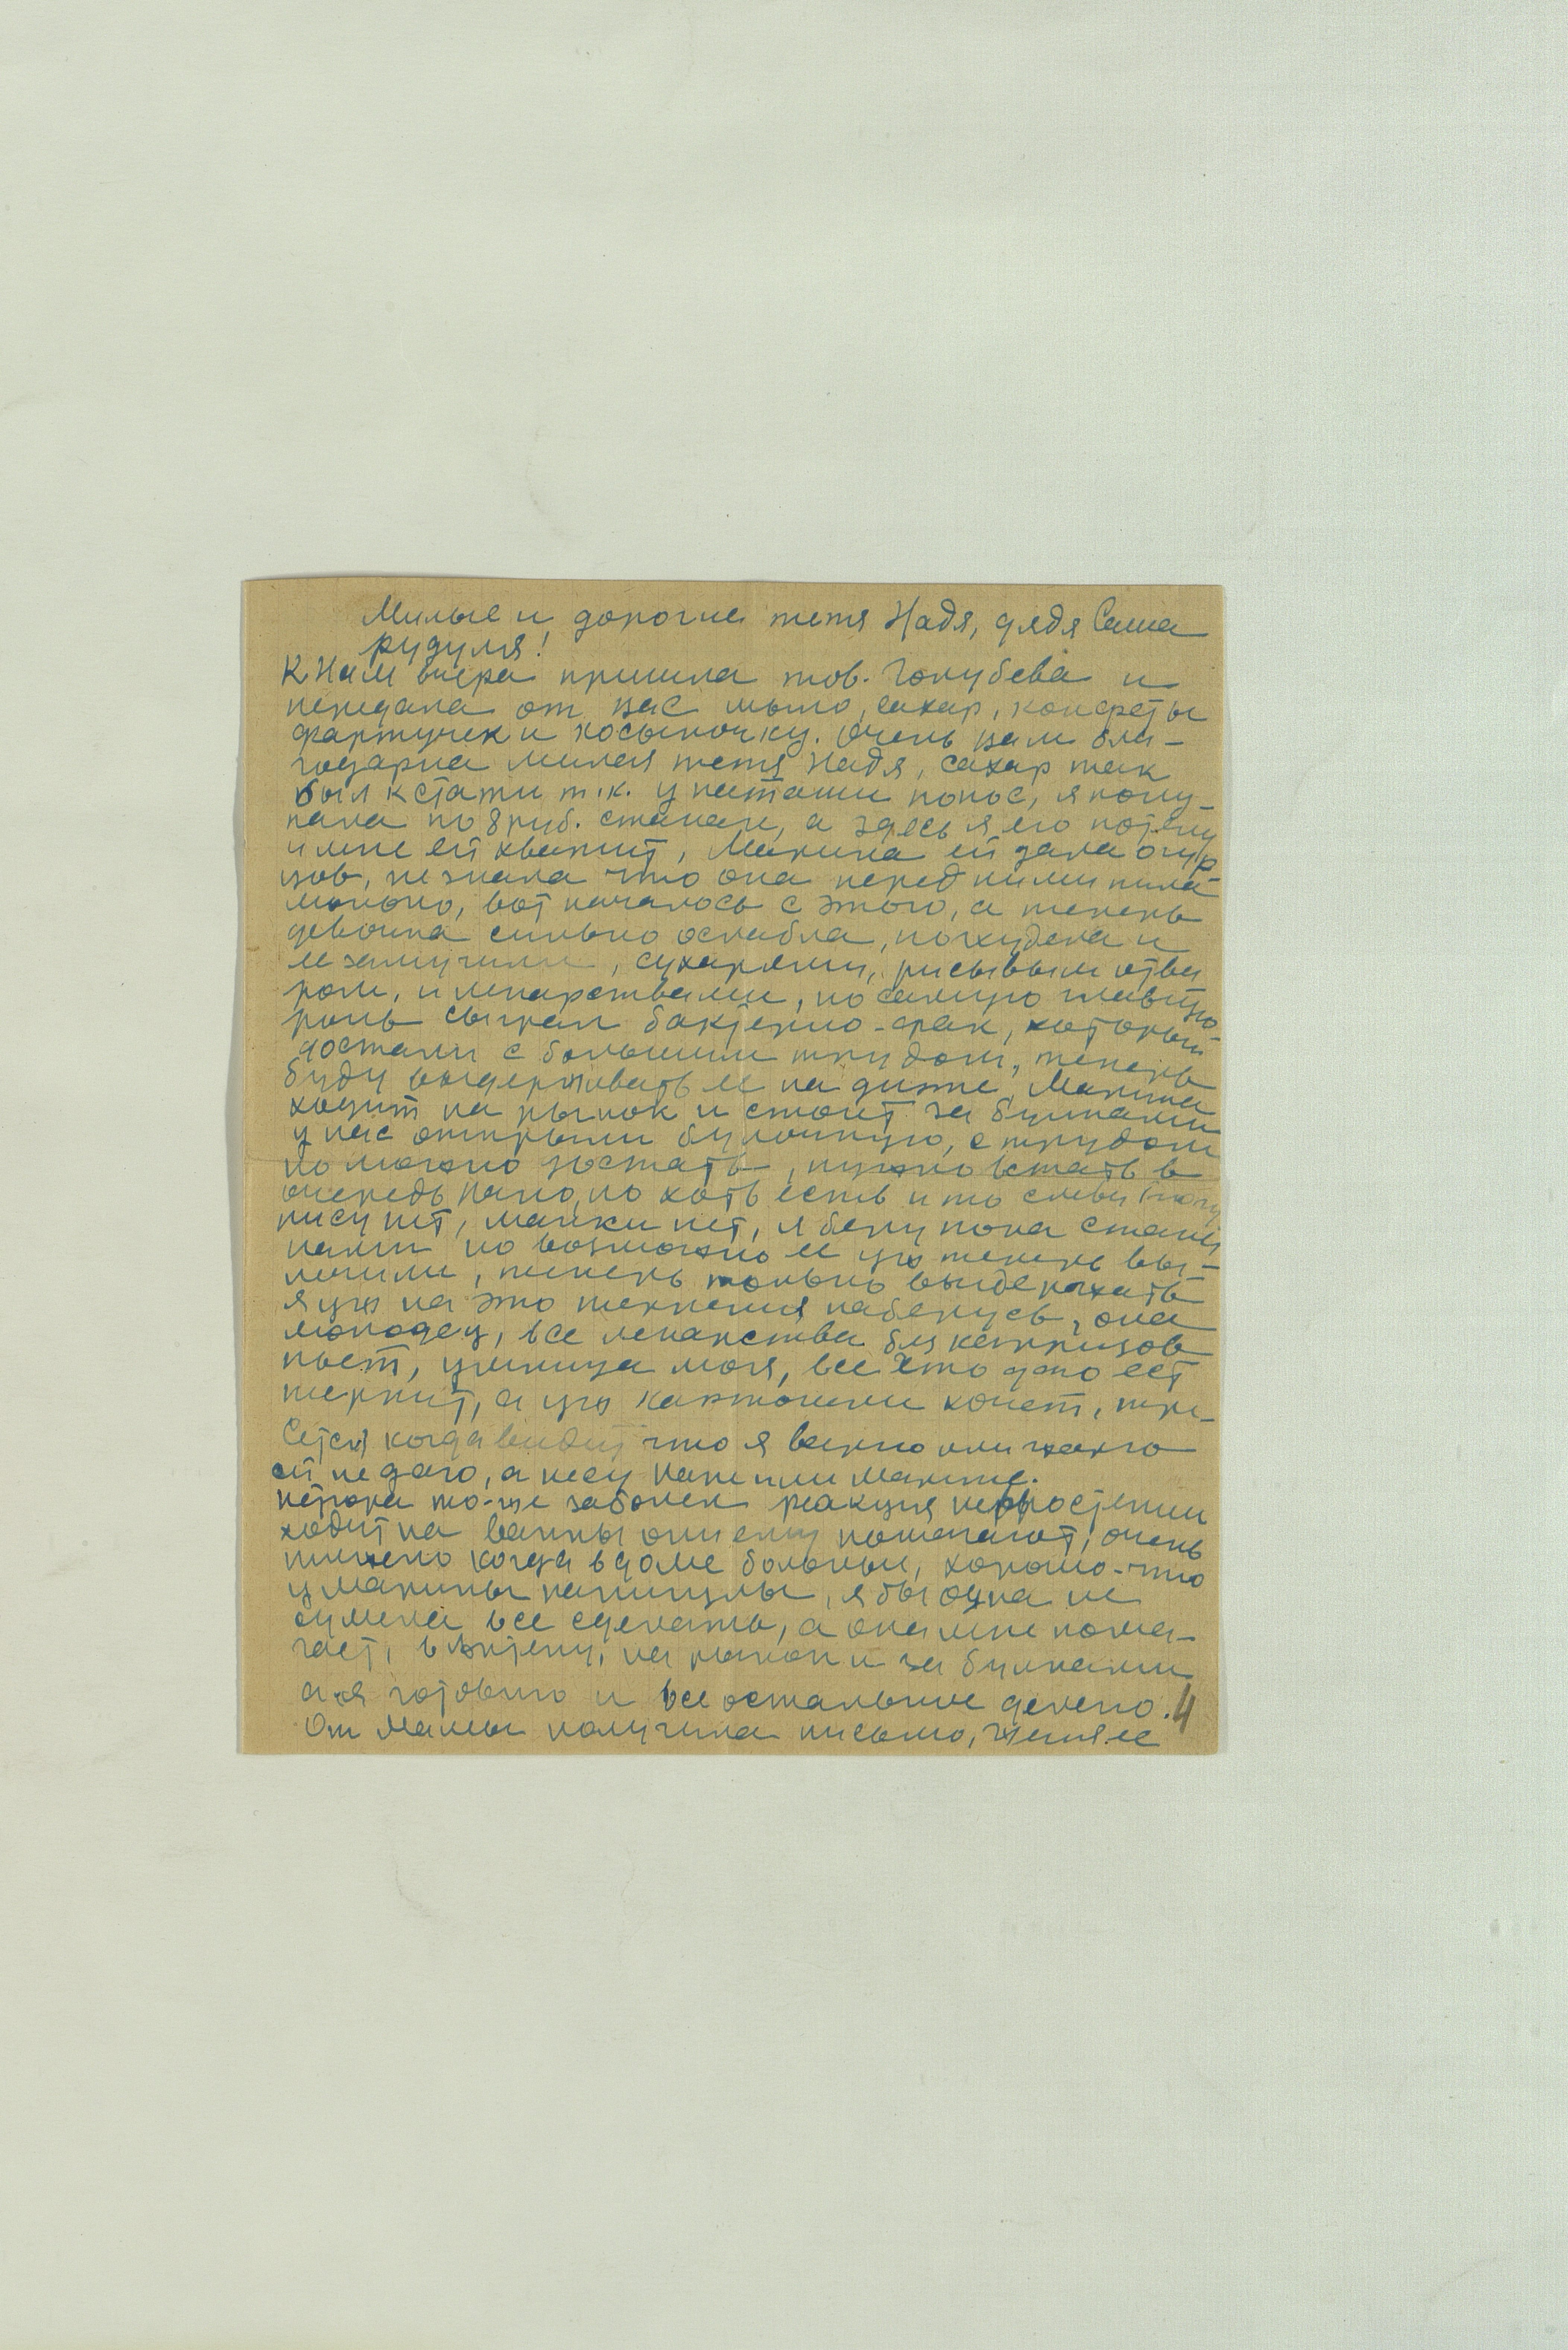 Милые и дорогие тетя Надя, дядя Саша
рудуля!
К нам вчера пришла тов. Голубева и
передала от вас мыло, сахар, конфеты
фартучек и косыночку. Очень вам бла-
годарна милая тетя Надя, сахар так
был кстати т.к. у Наташи понос, я поку-
пала по 8 руб. стакан, а здесь я его
и мне ей хватит, Марина ей дала огур
цов, не знала что она перед ними пила
молоко, вот началось с этого, а теперь
девочка сильно ослабла, похудела и
ее замучили, сухарями, рисывым отва
ром, и лекарствами, но самую главную
роль сыграл бактерио-фак, который
достали с большим трудом, теперь
буду выдерживать ее на диэте, Марина
ходит на рынок и стоит за булками
у нас открыли булочную, с трудом
но можно достать, нужно встать в
очередь рано, но хоть есть и то слава богу
рису нет, манки нет, я беру пока стака
нами но возможно ее уж теперь вы-
лечили, теперь только выдержать
я уж на это терпения наберусь, она
молодец, все лекарства без капризов
пьет, умница моя, все что даю ест
терпит, а уж картошки хочет, тря-
сется когда видит что я варю или жарю
ей не даю, а несу папе или Марине.
Петрока то-же заболел реакция
ходит на ванны они ему помогают, очень
тяжело когда в доме больные, хорошо-что
у Марины каникулы, я бы одна не
сумела все сделать, а она мне помо-
гает, в аптеку, на рынок и за булками
а я готовлю и все остальные делаю. 4
От Мамы получила письмо,